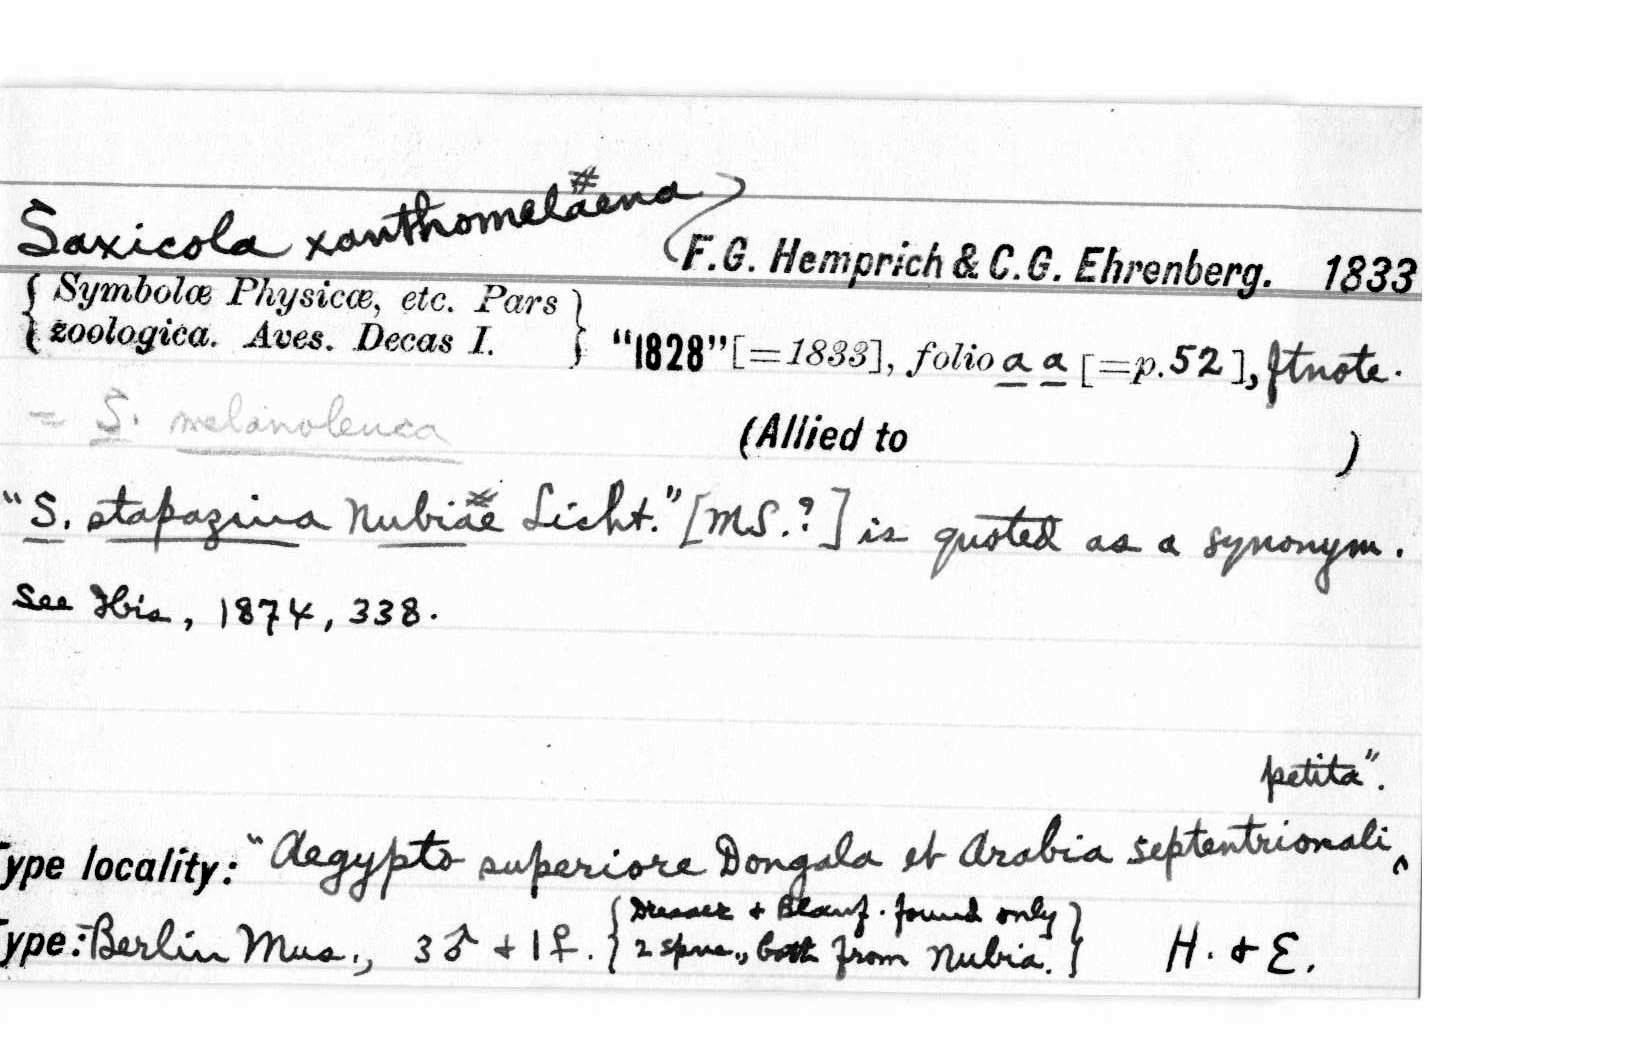 #
Saxicola xanthomelaena
F.G. Hemprich & C.G. Ehrenberg. 1833
{Symbolæ Physicæ, etc. Pars
zoologica. Aves. Decas I.} "1828" [=1833], folio a a [=p. 52], ftnote.
= S. melanoleuca (Allied to )
#
"S. stapazina Nubiae Licht." [MS.?] is quoted as a synonym.
See Ibis, 1874, 338.
petita".
Type locality: "Aegypto superiore Dongala et Arabia septentrionali ^
Type: Berlin Mus., 3♂ + 1♀. {Dresser + Blanf. found only
2 spms., both from Nubia.} H. + E.